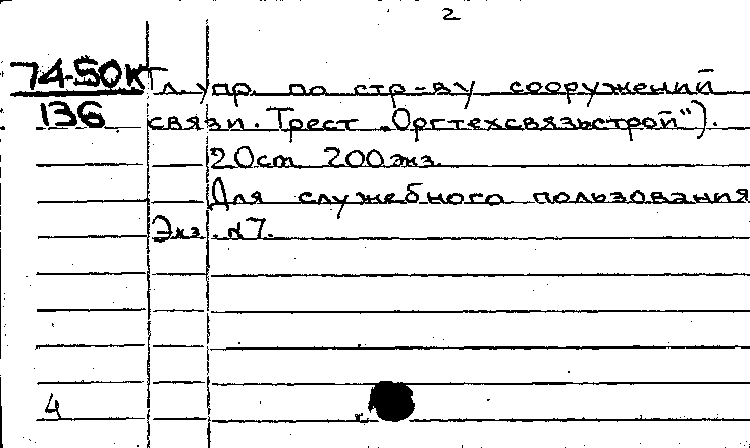 2
74-50К Гл. упр. по стр-ву сооружений
136 связи. Трест „Оргтехсвязьстрой").
20см 200экз.
Для служебного пользования
Экз. №7.
4